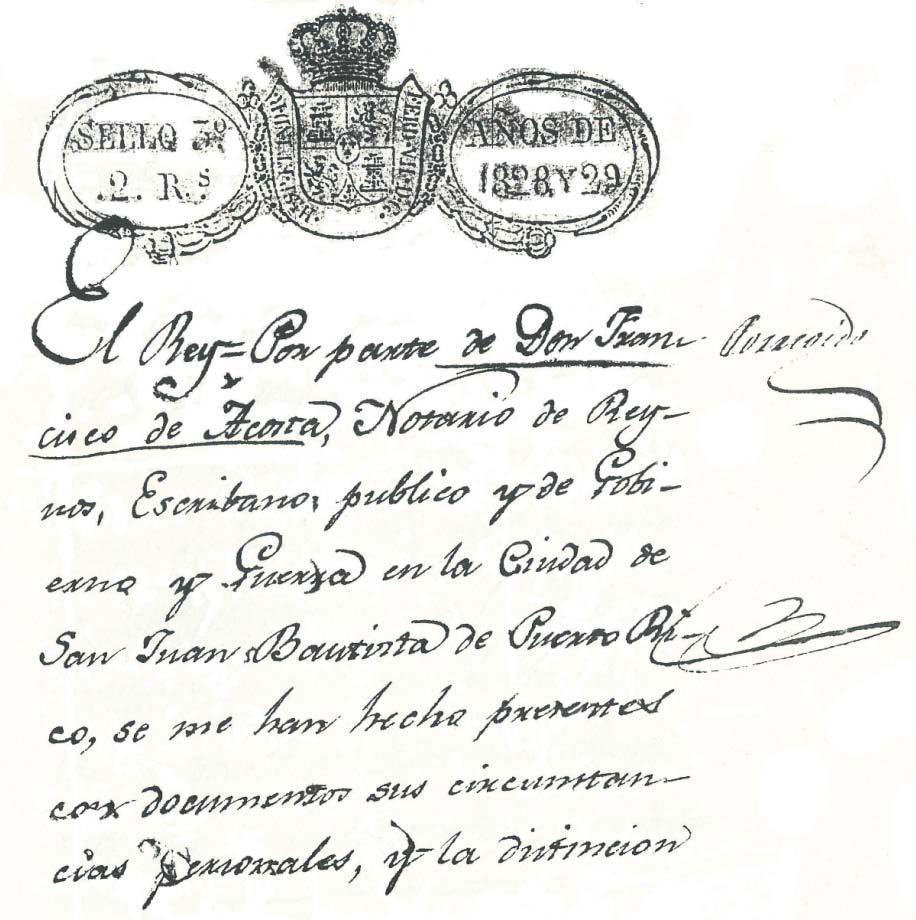 SELLO 3º
.2. R.s
AÑOS DE
1828 Y 29
El Rey = Por parte de Don Fran-
cisco de Acosta, Notario de Rey-
nos, Escribano, publico y de Gobi-
erno y Guerra en la Ciudad de
San Juan Bautista de Puerto Ri-
co, se me han hecho presentes
con documentos sus circunstan-
cias personales, y la distincion
Corregido